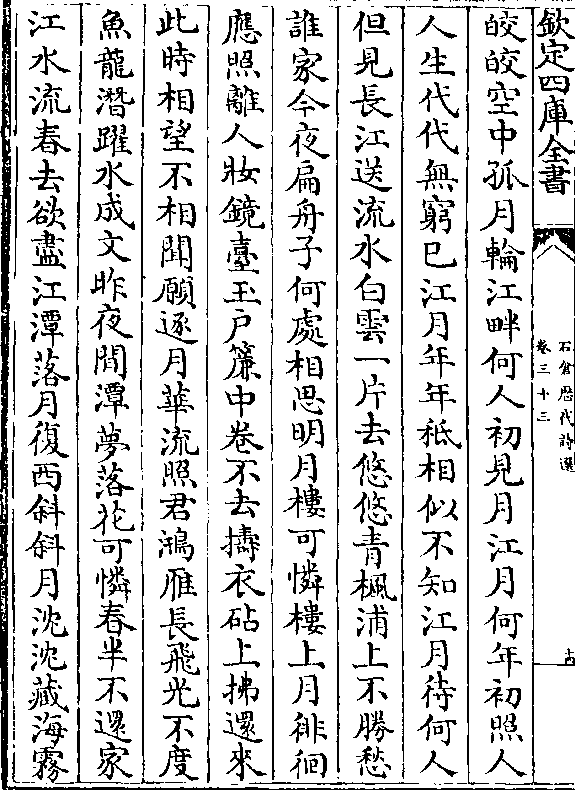 欽定四庫全書
石倉歴代詩選
卷三十三
古
皎皎空中孤月輪江畔何人初見月江月何年初照人
人生代代無窮已江月年年秪相似不知江月待何人
但見長江送流水白雲一片去悠悠青楓浦上不勝愁
誰家今夜扁舟子何處相思明月樓可憐樓上月徘徊
應照離人妝鏡臺玉戶簾中卷不去擣衣砧上拂還來
此時相望不相聞願逐月華流照君鴻雁長飛光不度
魚龍潛躍水成文昨夜間潭夢落花可憐春半不還家
江水流春去欲盡江潭落月復西斜斜月沈沈藏海霧